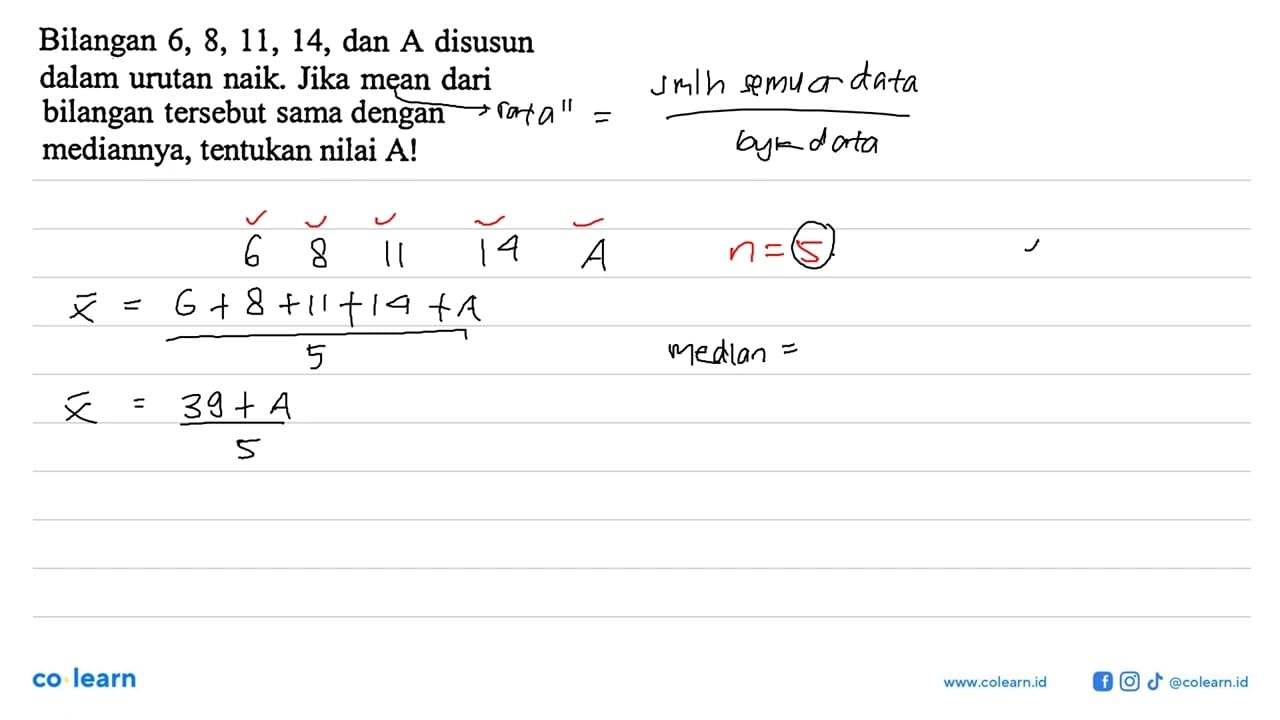 Bilangan 6, 8, 11, 14, dan A disusun
dalam urutan naik. Jika mean dari
bilangan tersebut sama dengan
mediannya, tentukan nilai A!
→ rata" = jmlh semua data
byk data
6 8 11 14 A n = 5
x̄ = 6 + 8 + 11 + 14 + A
5
median =
x̄ = 39 + A
5
co learn
www.colearn.id
@colearn.id